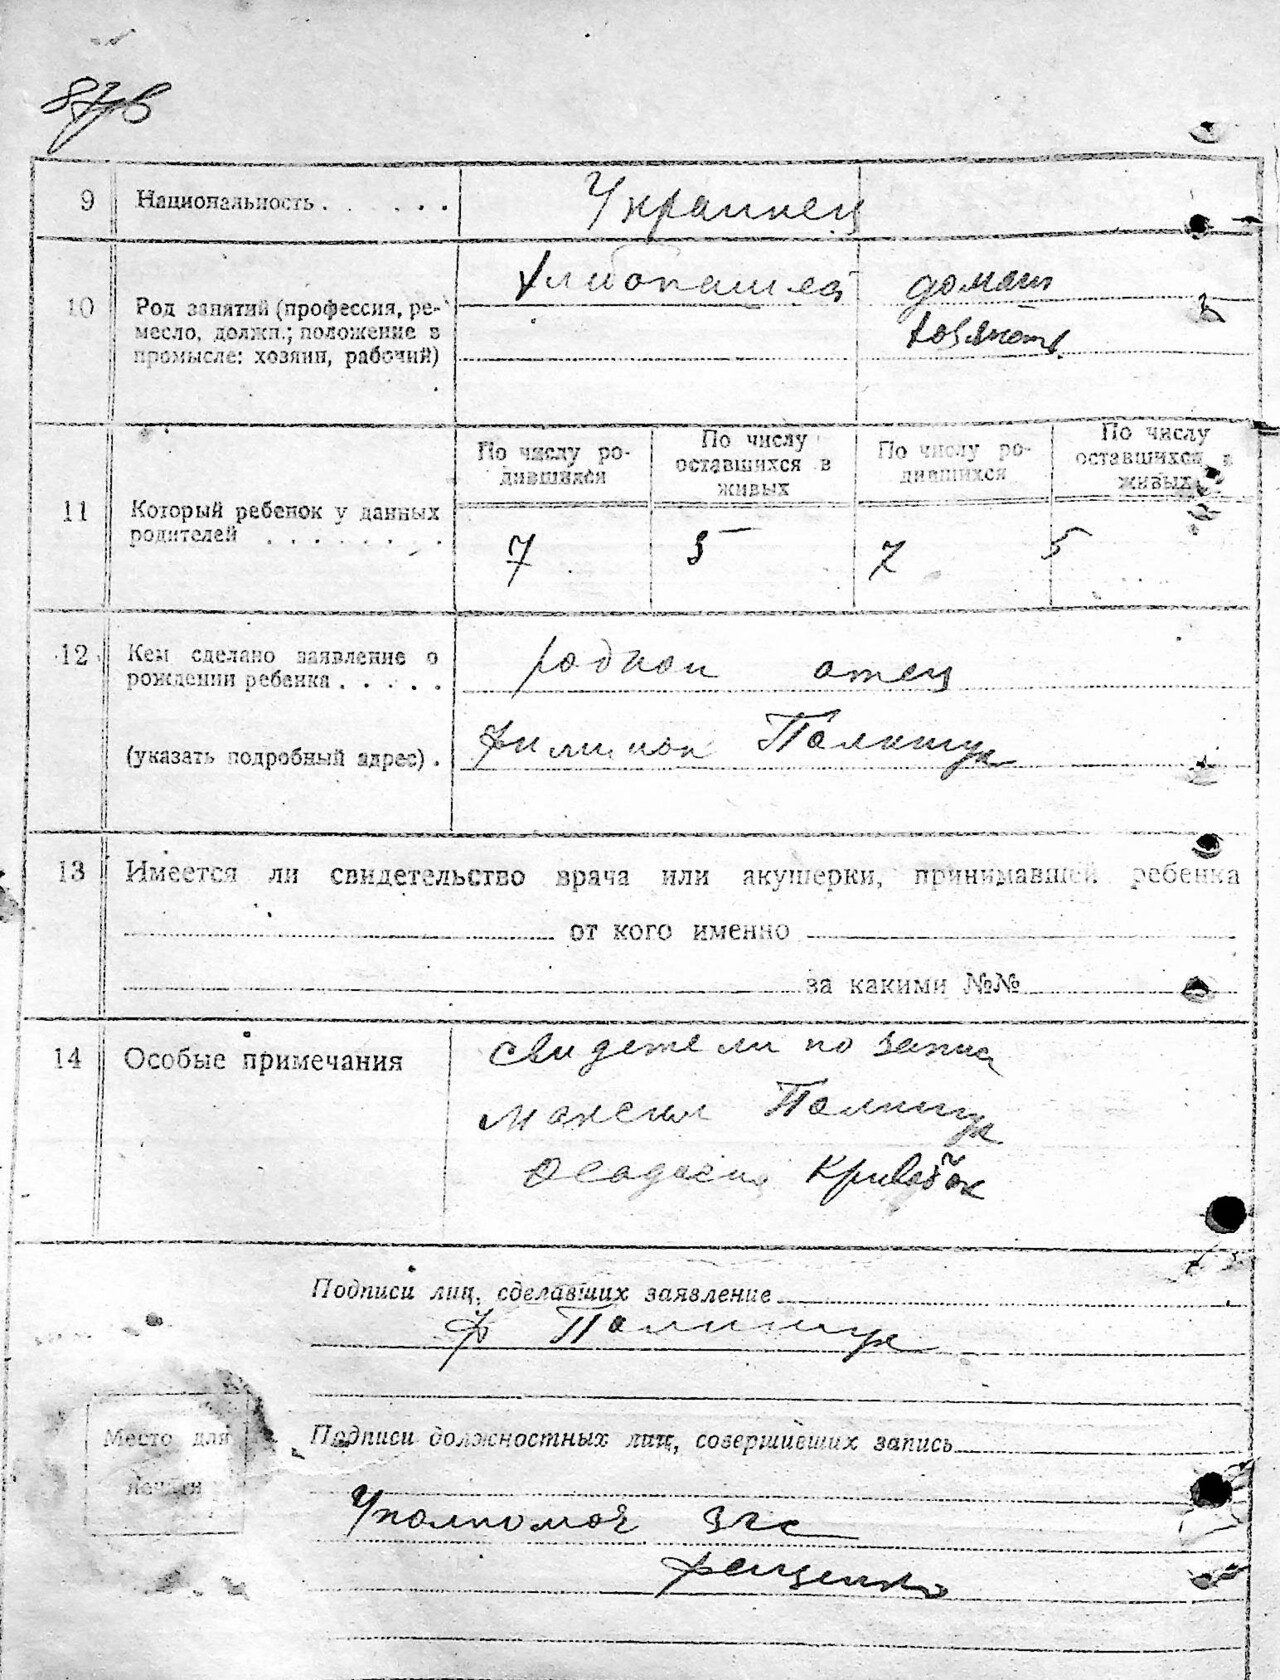 9 Национальность . . . . . . Украинец
10 Род занятий (профессия, ремесло, должн.; положение в промысле: хозяин, рабочий)
Хлибопашец домаш
хозяйств
11 Который ребенок у данных родителей . . . . . . . .
По числу родившихся
По числу оставшихся в живых
По числу родившихся
По числу оставшихся в живых
7 5 7 5
12 Кем сделано заявление о рождении ребенка . . . . .
родной отец
(указать подробный адрес) .
Филимон Полищук
13 Имеется ли свидетельство врача или акушерки, принимавшей ребенка
от кого именно
за какими №№
14 Особые примечания
свидетели по запис
Максим Полищук
Подписи лиц, сделавших заявление
Ф Полищук
Место для
печати
Подписи должностных лиц, совершивших запись
Уполномоч загс